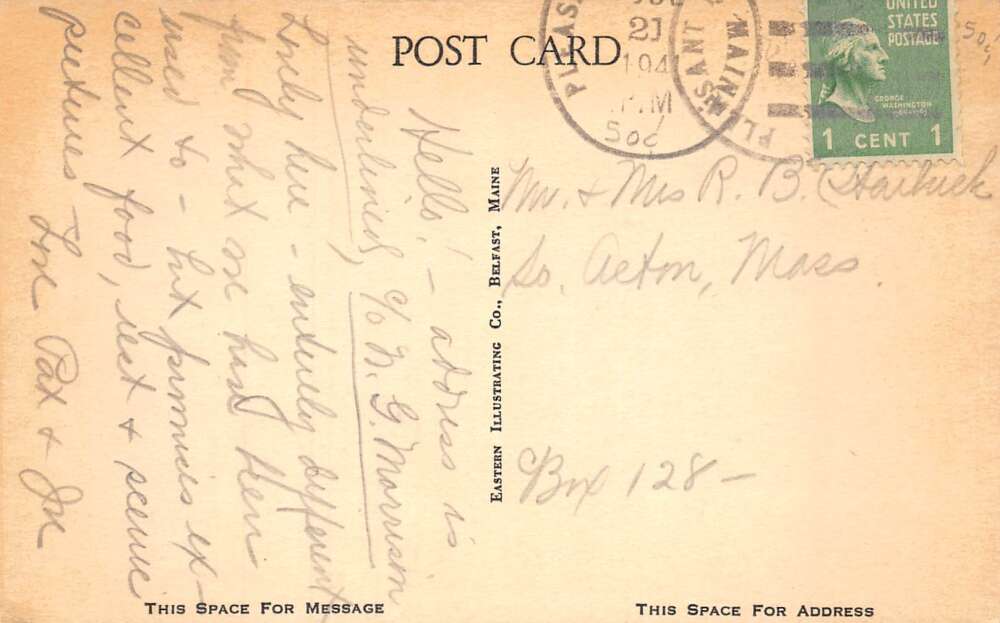 POST CARD
UNITED
STATES
POSTAGE
GEORGE
WASHINGTON
1 CENT 1
PLEASANT
MAINE
21
194
PM
50¢
50¢
Hello! - address is
underlined, c/o N. G. Morrison
Lovely here - entirely different
from what we have been
used to - but promises ex-
cellent food, rest & scenic
pictures - Love Pat & Joe
EASTERN ILLUSTRATING CO., BELFAST, MAINE
Mr. & Mrs R. B.
So. Acton, Mass.
Box 128 -
THIS SPACE FOR MESSAGE
THIS SPACE FOR ADDRESS